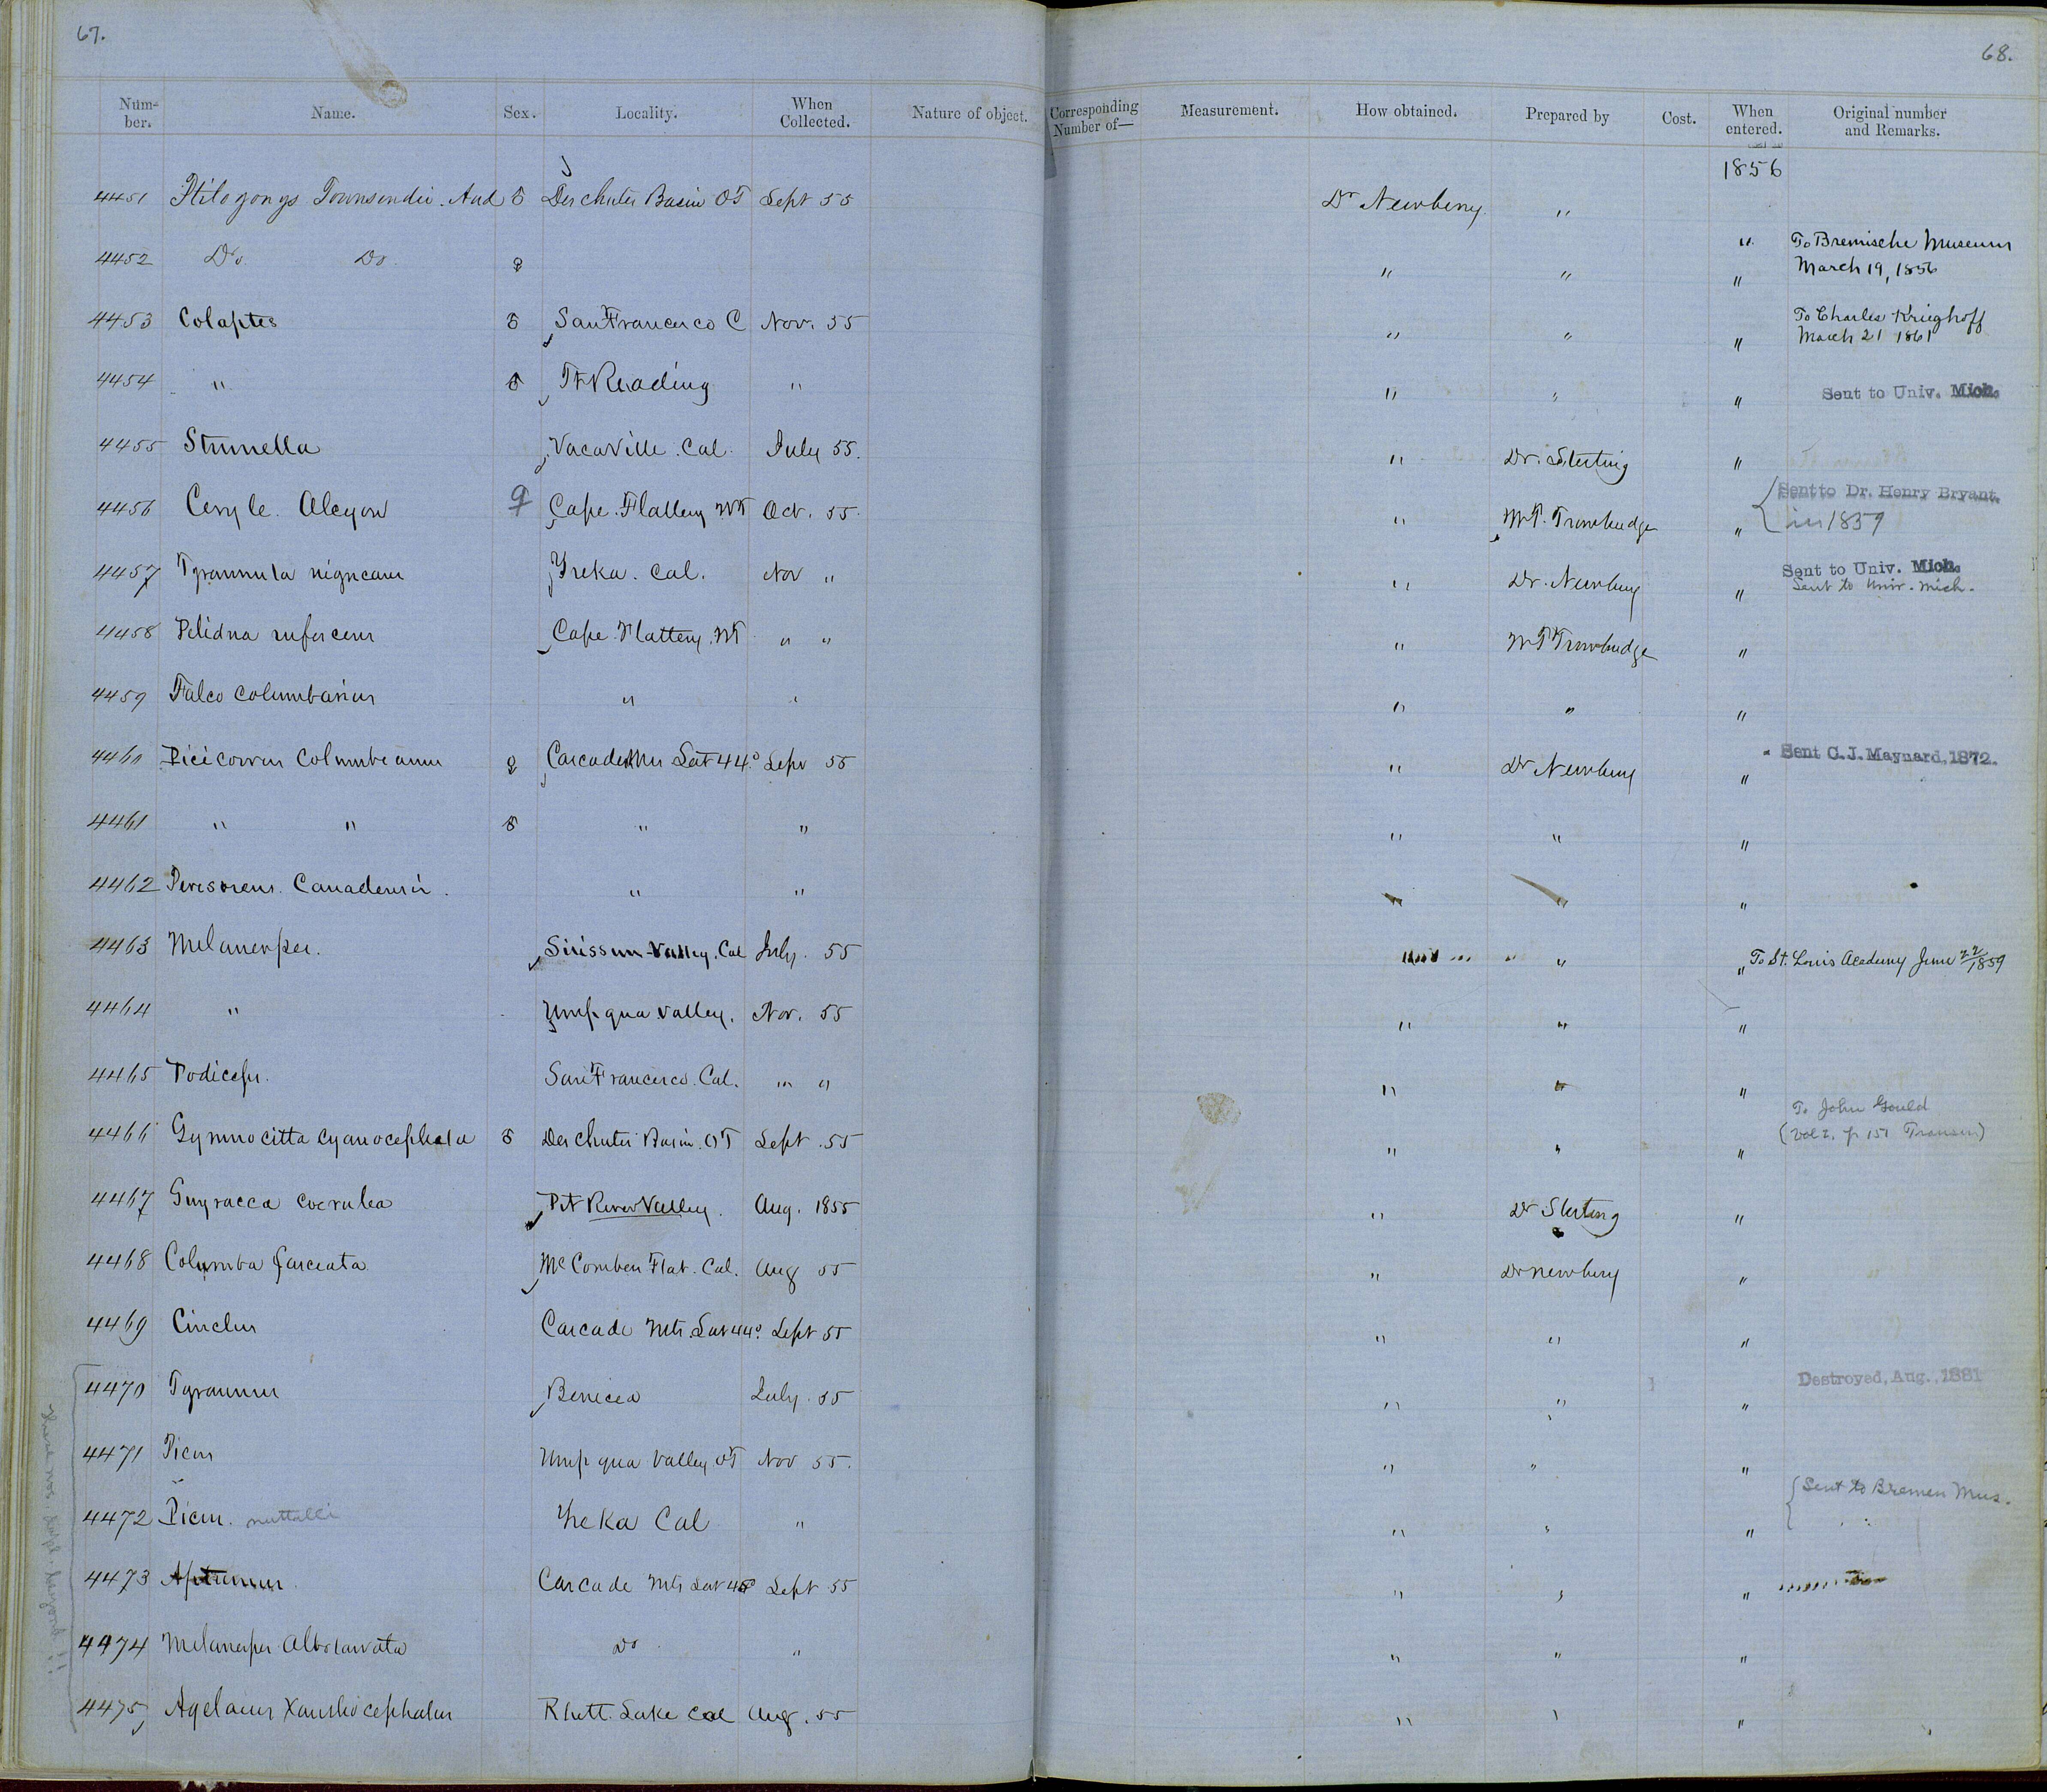 67.
68.
Num-ber. Name. Sex. Locality. When Collected. Nature of object. Corresponding Number of— Measurement. How obtained. Prepared by Cost. When entered. Original number and Remarks.
1856
4451 Ptilogonys Townsendii. Aud ♂ Des Chutes Basin OT Sept 55 Dr Newberry "
" To Bremische Museum
4452 Do Do ♀ " " " March 19, 1856
4453 Colaptes ♂ San Francisco C Nov. 55 " " " To Charles Krieghoff March 21 1861
4454 " ♂ Ft Reading " " " " Sent to Univ. Mich.
4455 Sturnella Vacaville. Cal. July 55. " Dr. Sterling "
4456 Ceryle Alcyon ♀ Cape Flattery WT Oct. 55. " W P. Trowbridge " Sent to Dr. Henry Bryant. in 1859
4457 Tyrannula nigricans Yreka. Cal. Nov " " Dr. Newberry " Sent to Univ. Mich. Sent to Univ. Mich.
4458 Pelidna Cape Flattery. WT " " " W P Trowbridge "
4459 Falco columbarius " " " " "
4460 Picicorvus Columbianus ♀ Cascade Mts Lat 44° Sept 55 " Dr Newberry " Sent C. J. Maynard, 1872.
4461 " " ♂ " " " " "
4462 Perisoreus Canadensis. " " " " "
4463 Melanerpes. Valley. Cal July. 55 " " To St. Louis Academy June 22/1859
4464 " Umpqua Valley. Nov. 55 " " "
4465 Podiceps. San Francisco. Cal. " " " " "
4466 Gymnocitta cyanocephala ♂ Des Chutes Basin. OT Sept. 55 " " " To John Gould (Vol 2. p 151 Transm)
4467 Guiracca coerulea Pit River Valley. Aug. 1855 " Dr Sterling "
4468 Columba fasciata Flat. Cal. Aug 55 " Dr Newberry "
4469 Cinclus Cascade Mts. Lat 44°. Sept 55 " " "
4470 Tyrannus Benicia July. 55 " " " Destroyed, Aug., 1881
4471 Picus Umpqua Valley OT Nov 55. " " "
4472 Picus. nuttalli Yreka Cal " " " " Sent to Bremen Mus.
4473 Cascade Mts Lat Sept 55 " " "
4474 Melanerpes Albolarvatus Do " " " "
4475, Agelaius Xanthocephalus Rhett. Lake Cal Aug. 55 " " "